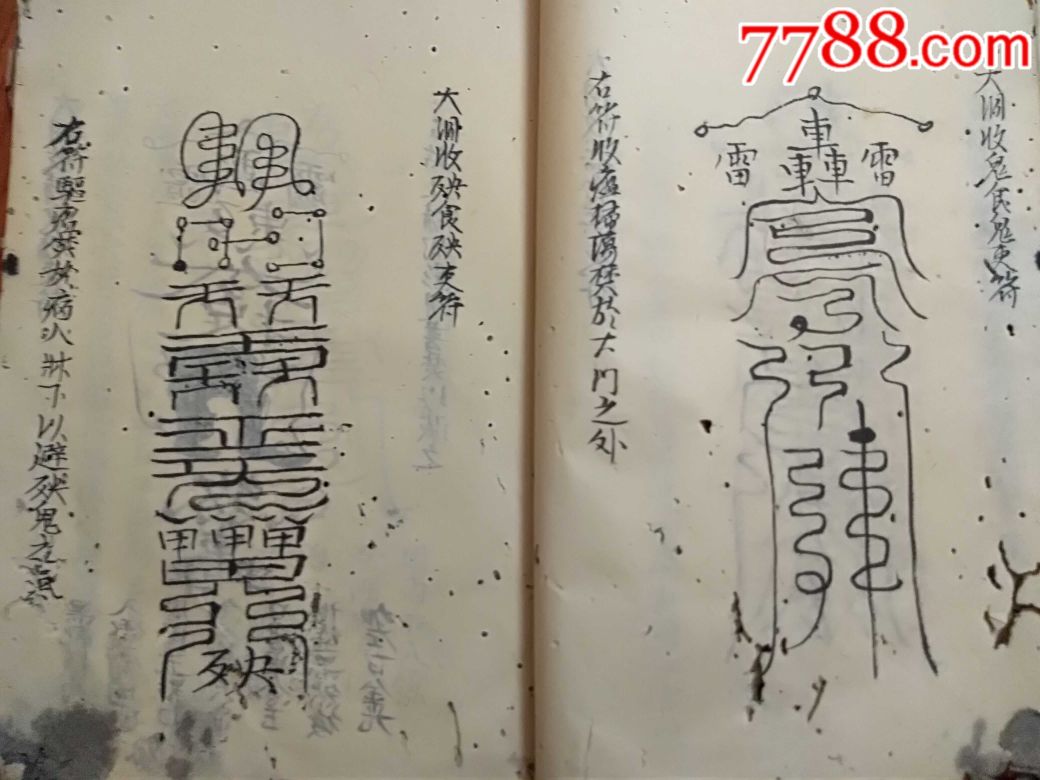 7788.com
大洞收鬼食鬼吏符
雷 轟 雷
右符收瘟掃蕩焚於大门之处
大洞收殃食殃吏符
甲甲甲
殃
右符驅瘟焚於病人牀下以避殃鬼之氣